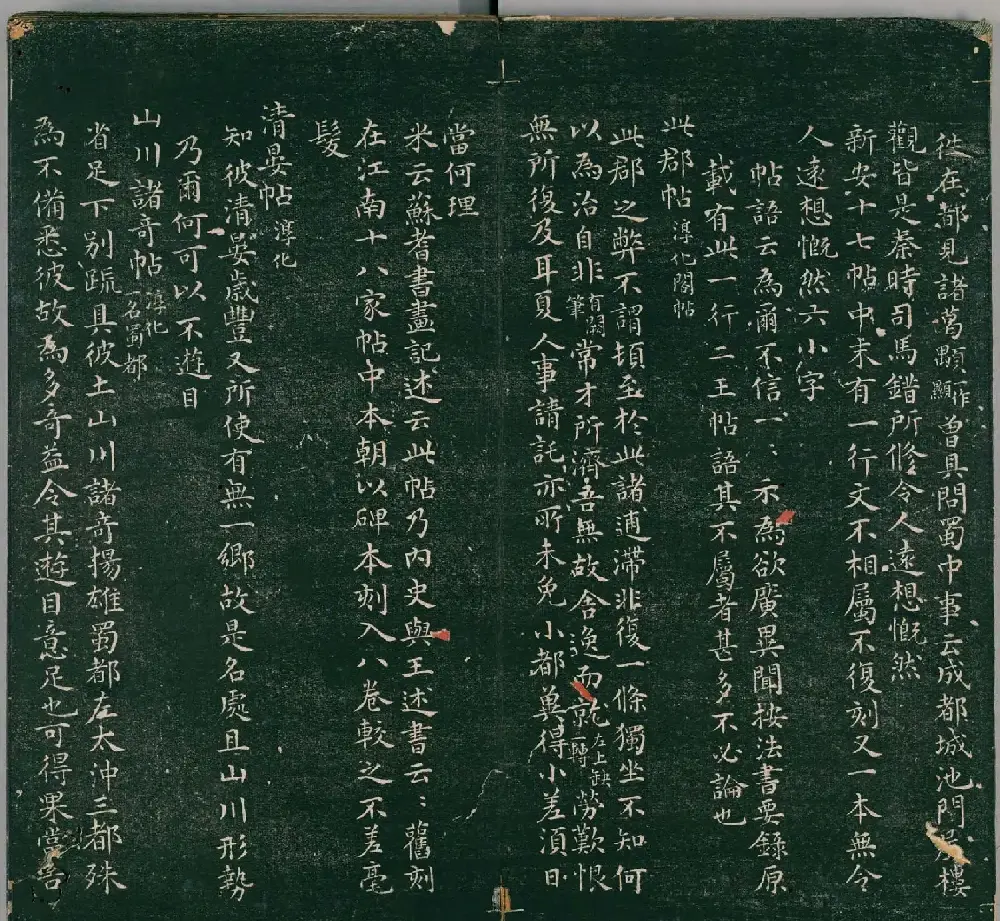 往在都見諸葛顒一作顯曾具問蜀中事云成都城池門屋樓
觀皆是秦時司馬錯所修令人遠想慨然
新安十七帖中未有一行文不相屬不復刻又一本無令
人遠想慨然六小字
帖語云為爾不信一一示為欲廣異聞按法書要錄原
載有此一行二王帖語其不屬者甚多不必論也
此郡帖淳化閣帖
此郡之弊不謂頓至於此諸逋滯非復一條獨坐不知何
以為治自非有闕筆常才所濟吾無故舍逸而就左上缺一轉勞歎恨
無所復及耳夏人事請託亦所未免小都冀得小差須日
當何理
米云蘇耆書畫記述云此帖乃內史與王述書云云舊刻
在江南十八家帖中本朝以碑本刻入八卷較之不差毫
髮
清晏帖淳化
知彼清晏歲豐又所使有無一鄉故是名處且山川形勢
乃爾何可以不遊目
山川諸奇帖淳化一名蜀都
省足下別疏具彼土山川諸奇揚雄蜀都左太沖三都殊
為不備悉彼故為多奇益令其遊目意足也可得果當告